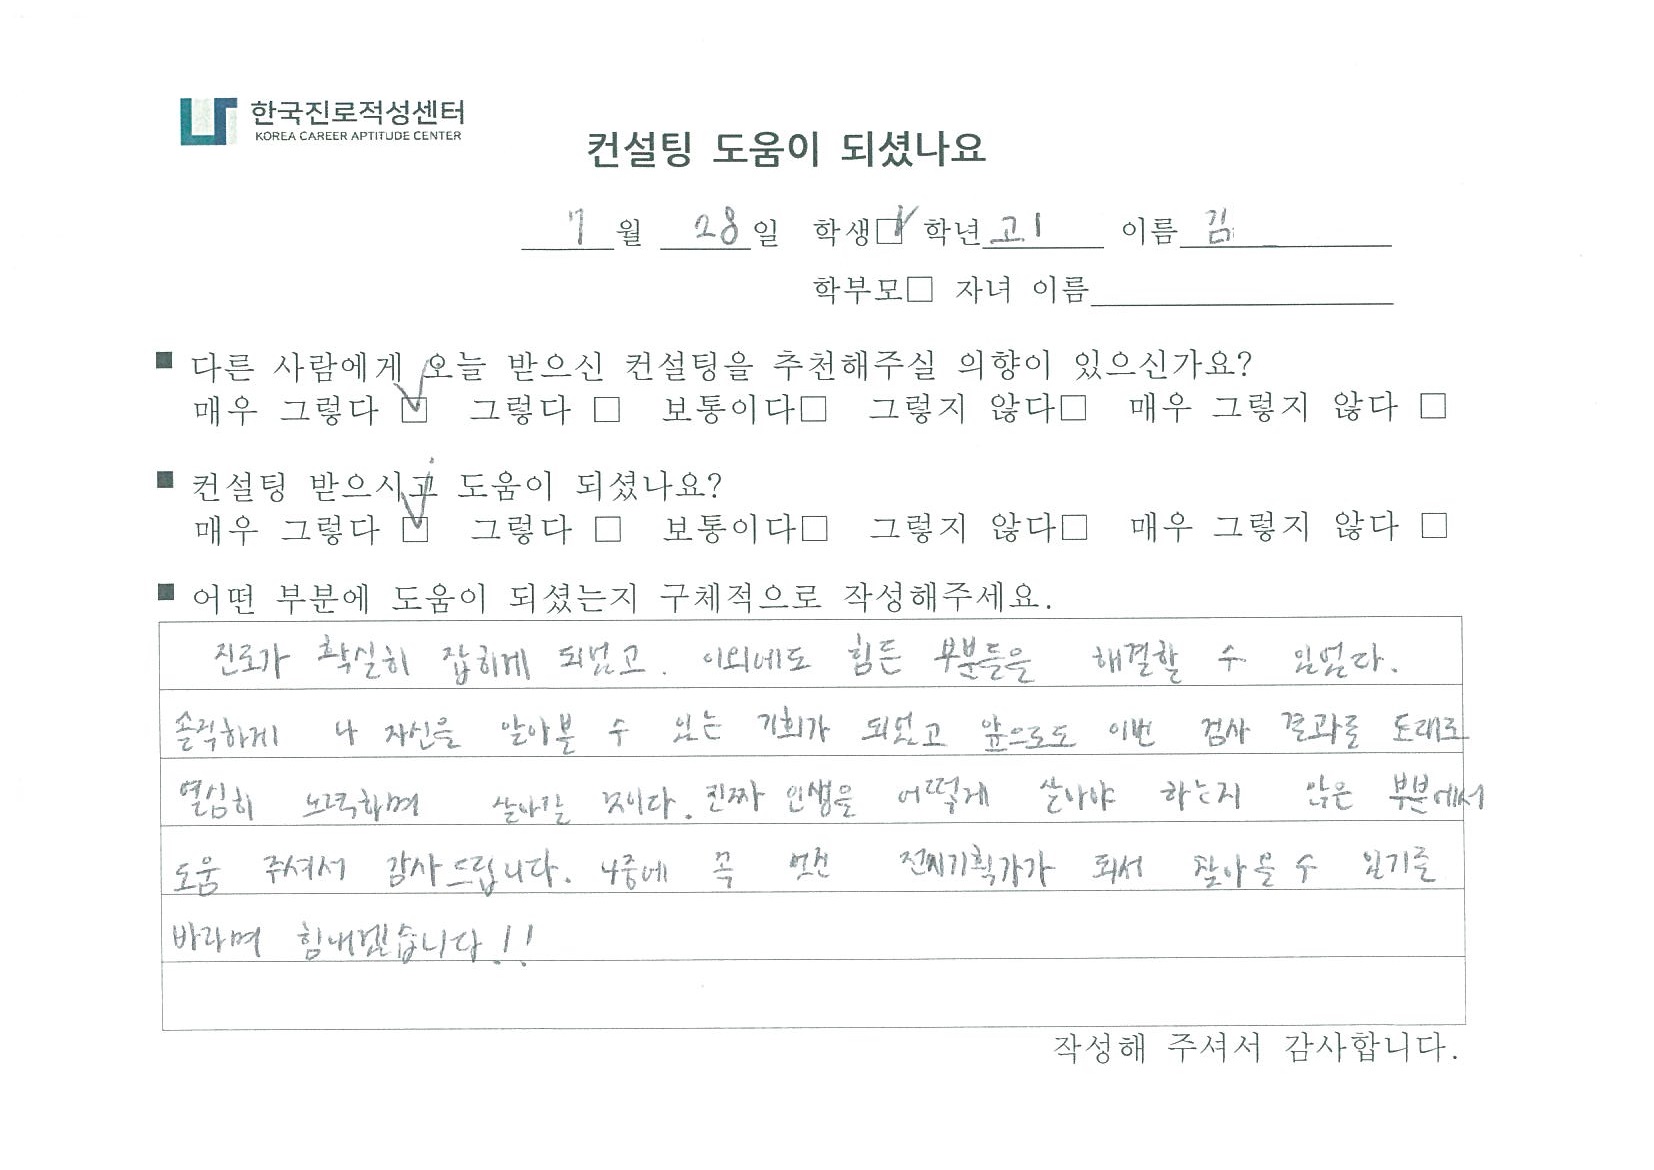 한국진로적성센터
KOREA CAREER APTITUDE CENTER
컨설팅 도움이 되셨나요
7월 28일 학생☑ 학년 고1 이름 김
학부모□ 자녀 이름
■ 다른 사람에게 오늘 받으신 컨설팅을 추천해주실 의향이 있으신가요?
매우 그렇다 ☑ 그렇다 □ 보통이다□ 그렇지 않다□ 매우 그렇지 않다 □
■ 컨설팅 받으시고 도움이 되셨나요?
매우 그렇다 ☑ 그렇다 □ 보통이다□ 그렇지 않다□ 매우 그렇지 않다 □
■ 어떤 부분에 도움이 되셨는지 구체적으로 작성해주세요.
진로가 확실히 잡히게 되었고. 이외에도 힘든 부분들을 해결할 수 있었다.
솔직하게 나 자신을 알아볼 수 있는 기회가 되었고 앞으로도 이번 검사 결과를 토대로
열심히 노력하며 살아갈 것이다. 진짜 인생을 어떻게 살아야 하는지 많은 부분에서
도움 주셔서 감사드립니다. 나중에 꼭 멋진 전시기획가가 되서 찾아올 수 있기를
바라며 힘내겠습니다!!
작성해 주셔서 감사합니다.